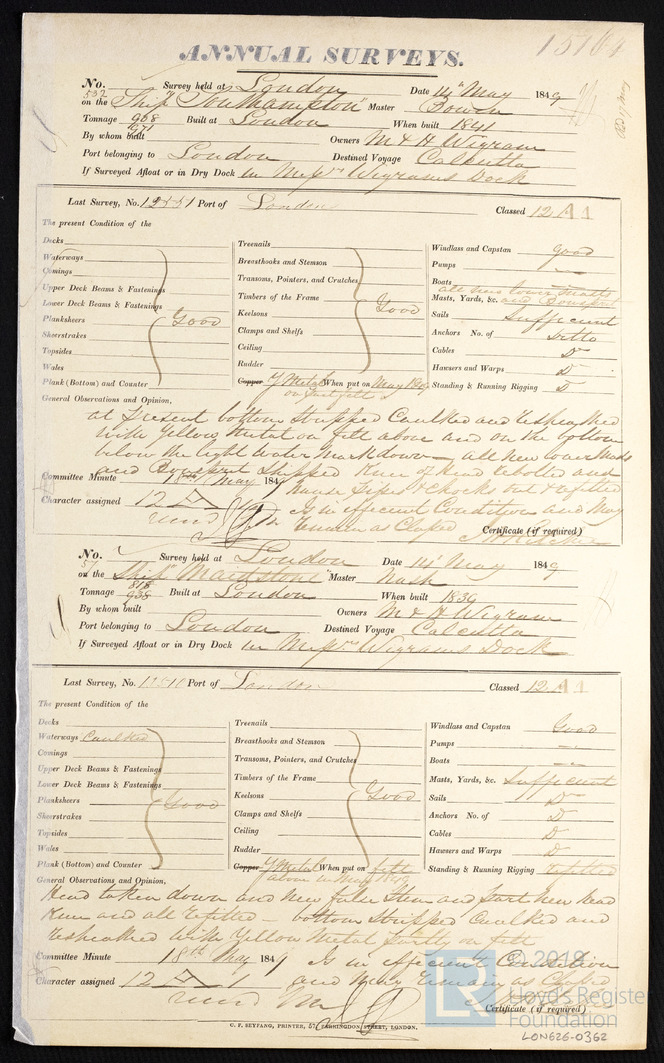 15764
ANNUAL SURVEYS.
No. 537 Survey held at London Date 14th May 1849
on the Ship "Southampton" Master Bowen
Tonnage 908 971 Built at London When built 1841
By whom built Owners M & H Wigram
Port belonging to London Destined Voyage Calcutta
If Surveyed Afloat or in Dry Dock in Messrs Wigrams Dock
Last Survey, No. 12551 Port of London Classed 12 A1
The present Condition of the
Decks
Waterways
Comings
Upper Deck Beams & Fastenings
Lower Deck Beams & Fastenings
Planksheers Good
Sheerstrakes
Topsides
Wales
Plank (Bottom) and Counter
Treenails
Breasthooks and Stemson
Transoms, Pointers, and Crutches
Timbers of the Frame
Keelsons Good
Clamps and Shelfs
Ceiling
Rudder
Copper Y Metal When put on May 1849
on part felt
Windlass and Capstan Good
Pumps
Boats
all new lower masts
Masts, Yards, &c. and Bowsprit
Sails Sufficient
Anchors No. of Ditto
Cables Do
Hawsers and Warps Do
Standing & Running Rigging Do
General Observations and Opinion,
at present bottom stripped Caulked and
with Yellow Metal on felt above and on the bottom
below the light Water Mark down all new lower Masts
and Bowsprit Shipped Knee of head rebolted and
Committee Minute 18th May 1849 hause pipes & chocks out & refitted
Character assigned 12 A 1 is in efficient Condition and May
remain as Classed Certificate (if required)
No. 57 Survey held at London Date 14 May 1849
on the Ship "Maidstone" Master Nash
Tonnage 818 938 Built at London When built 1839
By whom built Owners M & H Wigram
Port belonging to London Destined Voyage Calcutta
If Surveyed Afloat or in Dry Dock in Messrs Wigrams Dock
Last Survey, No. 13510 Port of London Classed 12 A1
The present Condition of the
Decks
Waterways Caulked
Comings
Upper Deck Beams & Fastenings
Lower Deck Beams & Fastenings
Planksheers Good
Sheerstrakes
Topsides
Wales
Plank (Bottom) and Counter
Treenails
Breasthooks and Stemson
Transoms, Pointers, and Crutches
Timbers of the Frame
Keelsons Good
Clamps and Shelfs
Ceiling
Rudder
Copper Y Metal When put on felt
above in May 1849
Windlass and Capstan Good
Pumps
Boats
Masts, Yards, &c. Sufficient
Sails Do
Anchors No. of Do
Cables Do
Hawsers and Warps Do
Standing & Running Rigging Refitted
General Observations and Opinion,
Head taken down and new false Stem and part new head
Knee and all refitted — bottom stripped Caulked and
with Yellow Metal partly on felt
Committee Minute 18th May 1849 is in efficient Condition
Character assigned 12 A 1 and May remain as Classed
Certificate (if required)
C. F. SEYFANG, PRINTER, 57, FARRINGDON STREET, LONDON.
© 2018
Lloyd's Register
Foundation
LON626-0362